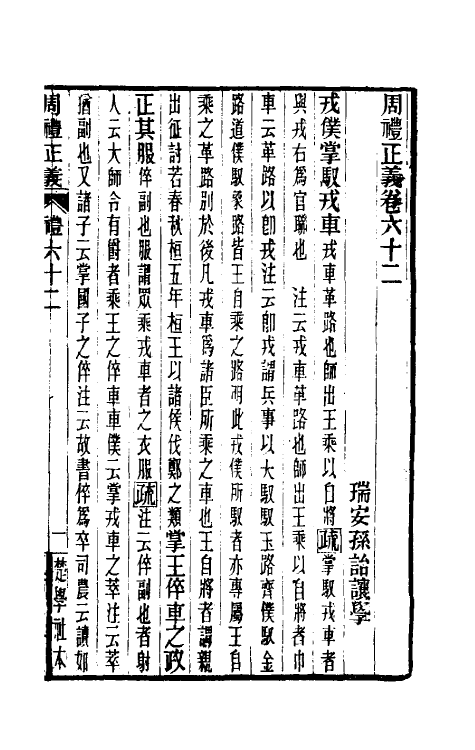 周禮正義卷六十二
瑞安孫詒讓學
戎僕掌馭戎車戎車革路也師出王乘以自將疏掌馭戎車者
與戎右爲官聯也　注云戎車革路也師出王乘以自將者巾
車云革路以卽戎注云卽戎謂兵事以大馭馭玉路齊僕馭金
路道僕馭象路皆王自乘之路明此戎僕所馭者亦專屬王自
乘之革路別於後凡戎車爲諸臣所乘之車也王自將者謂親
出征討若春秋桓五年桓王以諸侯伐鄭之類掌王倅車之政
正其服倅副也服謂眾乘戎車者之衣服疏注云倅副也者射
人云大師令有爵者乘王之倅車車僕云掌戎車之萃注云萃
猶副也又諸子云掌國子之倅注云故書倅爲卒司農云讀如
周禮正義　禮六十二
一　楚學社本